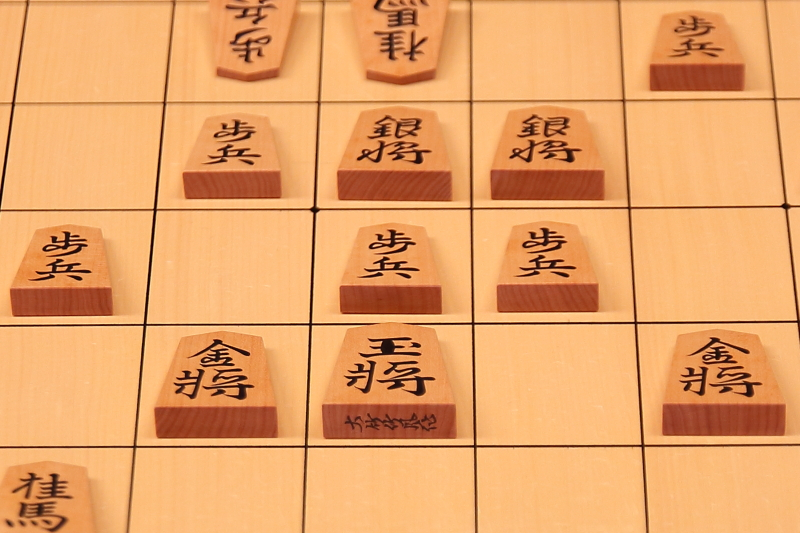 歩兵
桂馬
歩兵
歩兵
銀将
銀将
歩兵
歩兵
歩兵
金将
玉将
金将
桂馬